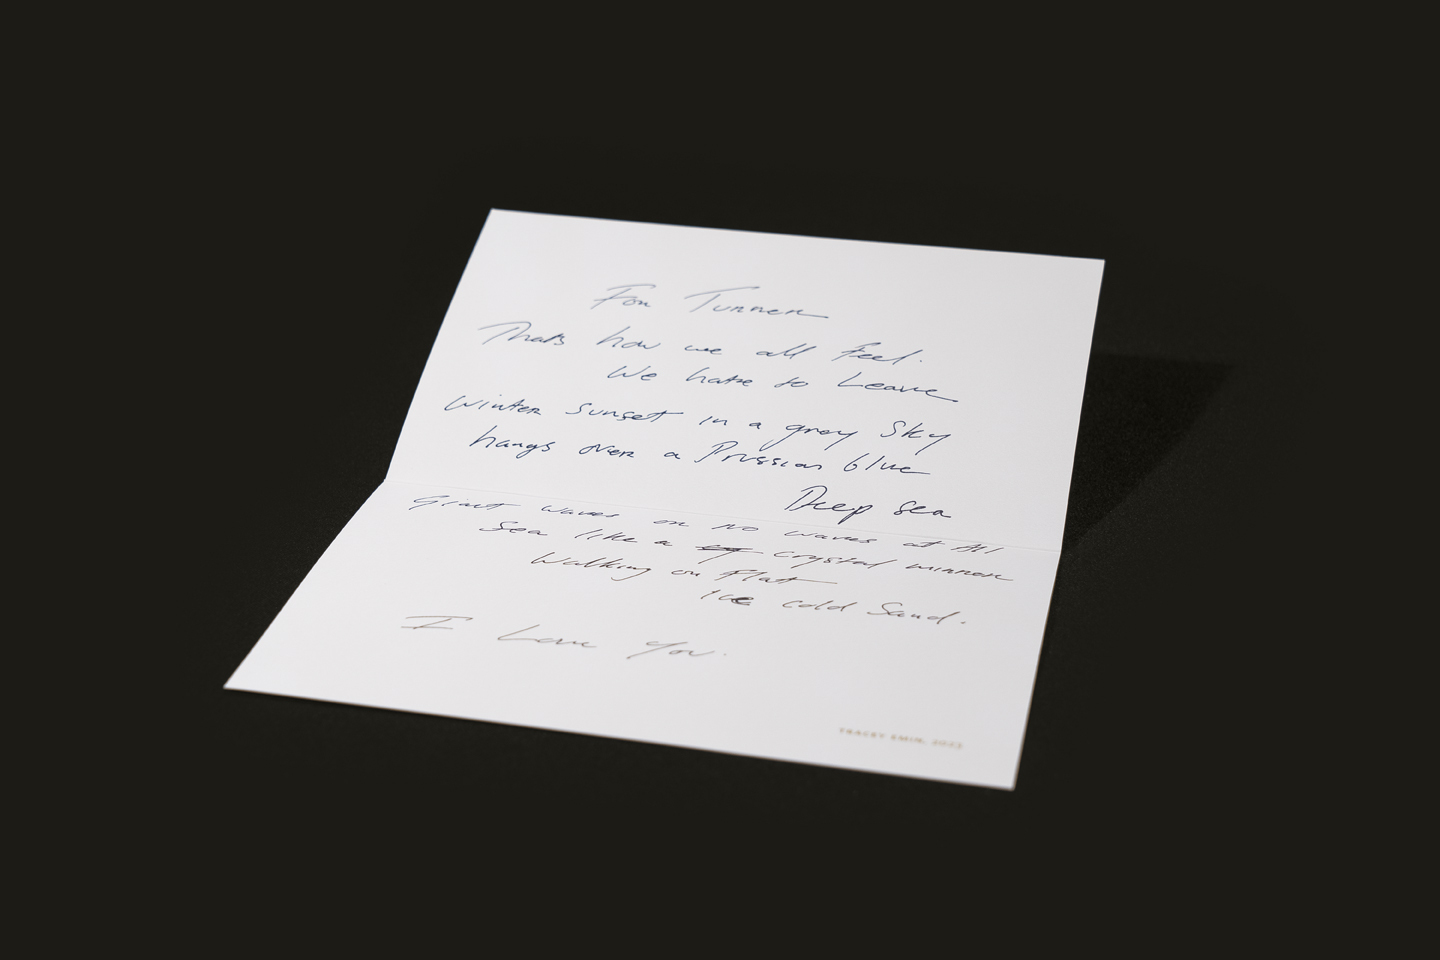 For Turner
Thats how we all Feel.
We hate to Leave
Winter Sunset in a grey Sky
hangs over a Prussian blue
Deep sea
Giant waves or no waves at All
Sea like a crystal mirror
Walking on Flat
Ice cold Sand.
I Love You.
TRACEY EMIN, 2023